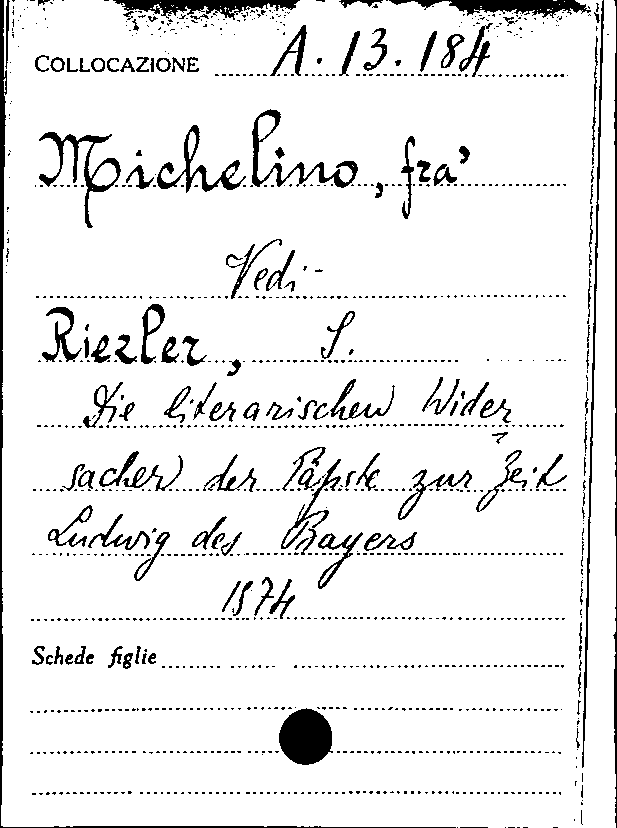 COLLOCAZIONE A. 13. 184
Michelino, fra'
Vedi -
Riezler, S.
Die literarischen Wider
sacher der Päpste zur Zeit
Ludwig des Bayers
1874
Schede figlie